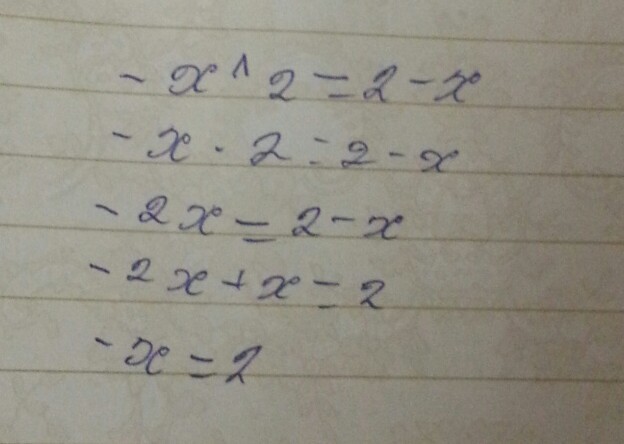 - x ^ 2 = 2 - x
- x · 2 = 2 - x
- 2x = 2 - x
- 2x + x = 2
- x = 2